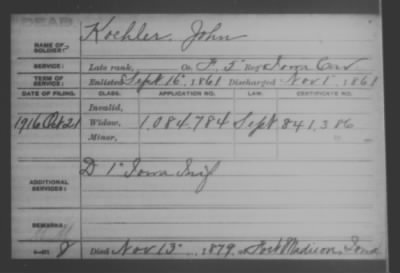 DEAD
Koehler, John
NAME OF SOLDIER:
SERVICE: Late rank, Co. F, 5" Reg't Iowa Cav
TERM OF SERVICE: Enlisted Sept 16", 1861 Discharged Nov 1", 1861
DATE OF FILING. CLASS. APPLICATION NO. LAW. CERTIFICATE NO.
Invalid,
1916 Oct 21 Widow, 1,084,784 Sept 841,386
Minor,
D 1" Iowa Inf
ADDITIONAL SERVICES:
REMARKS:
Died Nov 13", 1879, at Fort Madison, Iowa